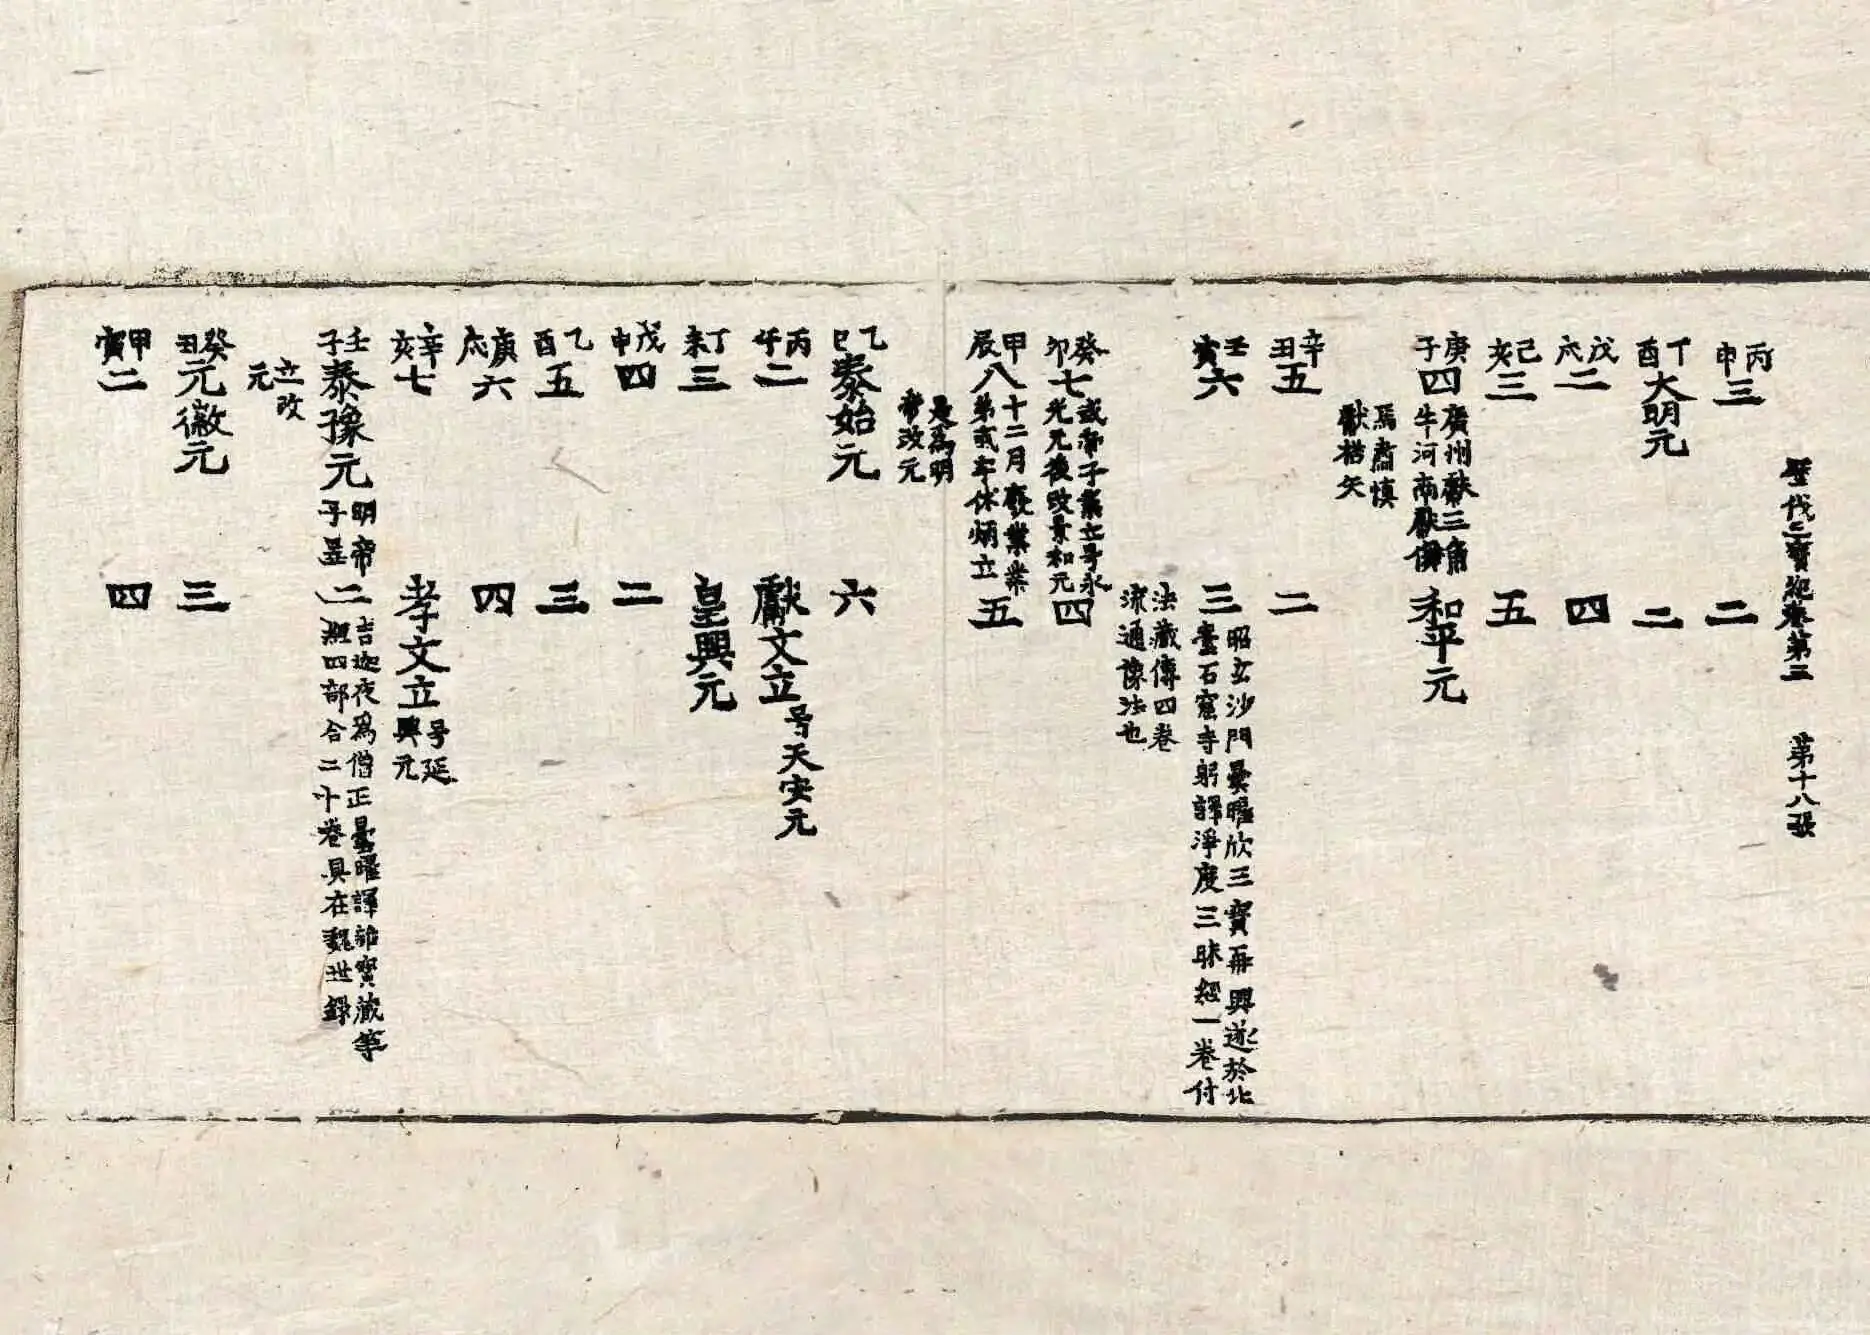 歷代三寶紀卷第三 第十八張
丙申三 二
丁酉大明元 二
戊戌二 四
己亥三 五
庚子四 廣州獻三角
牛河南獻
焉肅慎
獻楛矢
和平元
辛丑五 二
壬寅六 三 昭玄沙門曇曜欣三寶再興遂於北
臺石窟寺躬譯淨度三昧經一卷付
法藏傳四卷
流通像法也
癸卯七 帝子業立号永
光元後改景和元
四
甲辰八 十二月廢業業
弟彧字休炳立
是為明
帝改元
五
乙巳泰始元 六
丙午二 獻文立 号天安元
丁未三 皇興元
戊申四 二
乙酉五 三
庚戌六 四
辛亥七 孝文立 号延
興元
壬子泰豫元 明帝
子昱
立改
元
二 吉迦夜為僧正曇曜譯雜寶藏等
經四部合二十卷具在魏世錄
癸丑元徽元 三
甲寅二 四